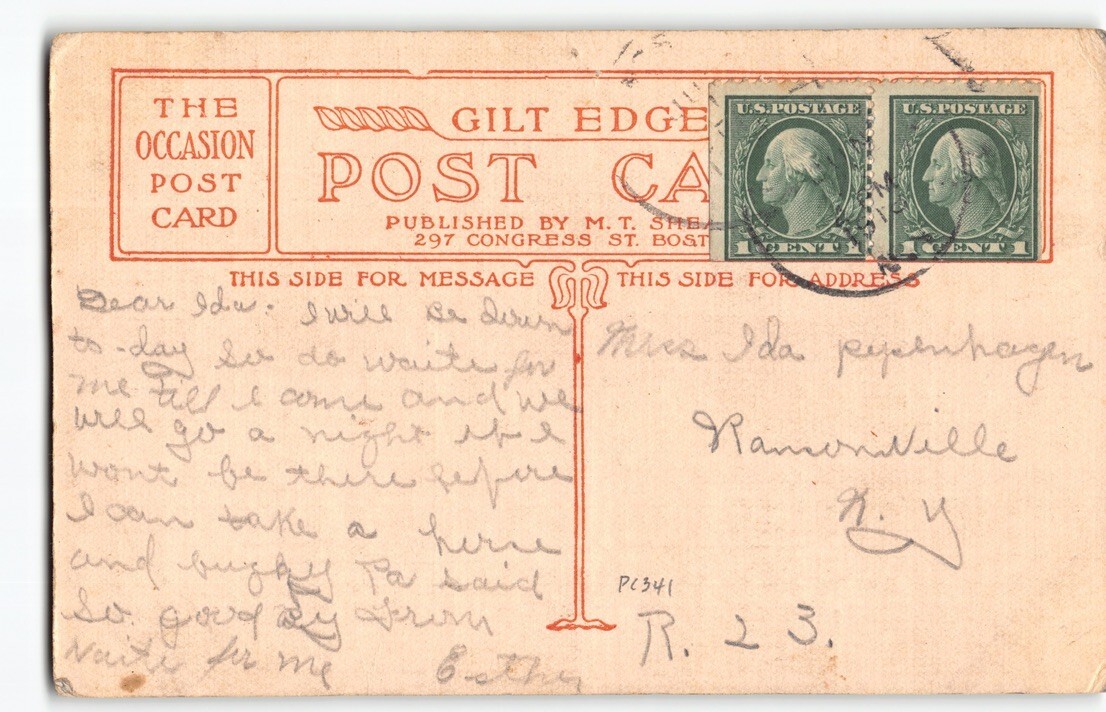 THE
OCCASION
POST
CARD
GILT EDGE
POST CA
PUBLISHED BY M. T. SHE
297 CONGRESS ST. BOST
U.S. POSTAGE
1 CENT 1
U.S. POSTAGE
1 CENT 1
THIS SIDE FOR MESSAGE
THIS SIDE FOR ADDRESS
Dear Ida: I will be down
to-day so do waite for
me till I come and we
will go a night if I
wont be there before
I can take a horse
and buggy Pa said
So good by from
Waite for me Esther
Miss Ida pepenhagen
RansonVille
N. Y
PC341
R. 23.